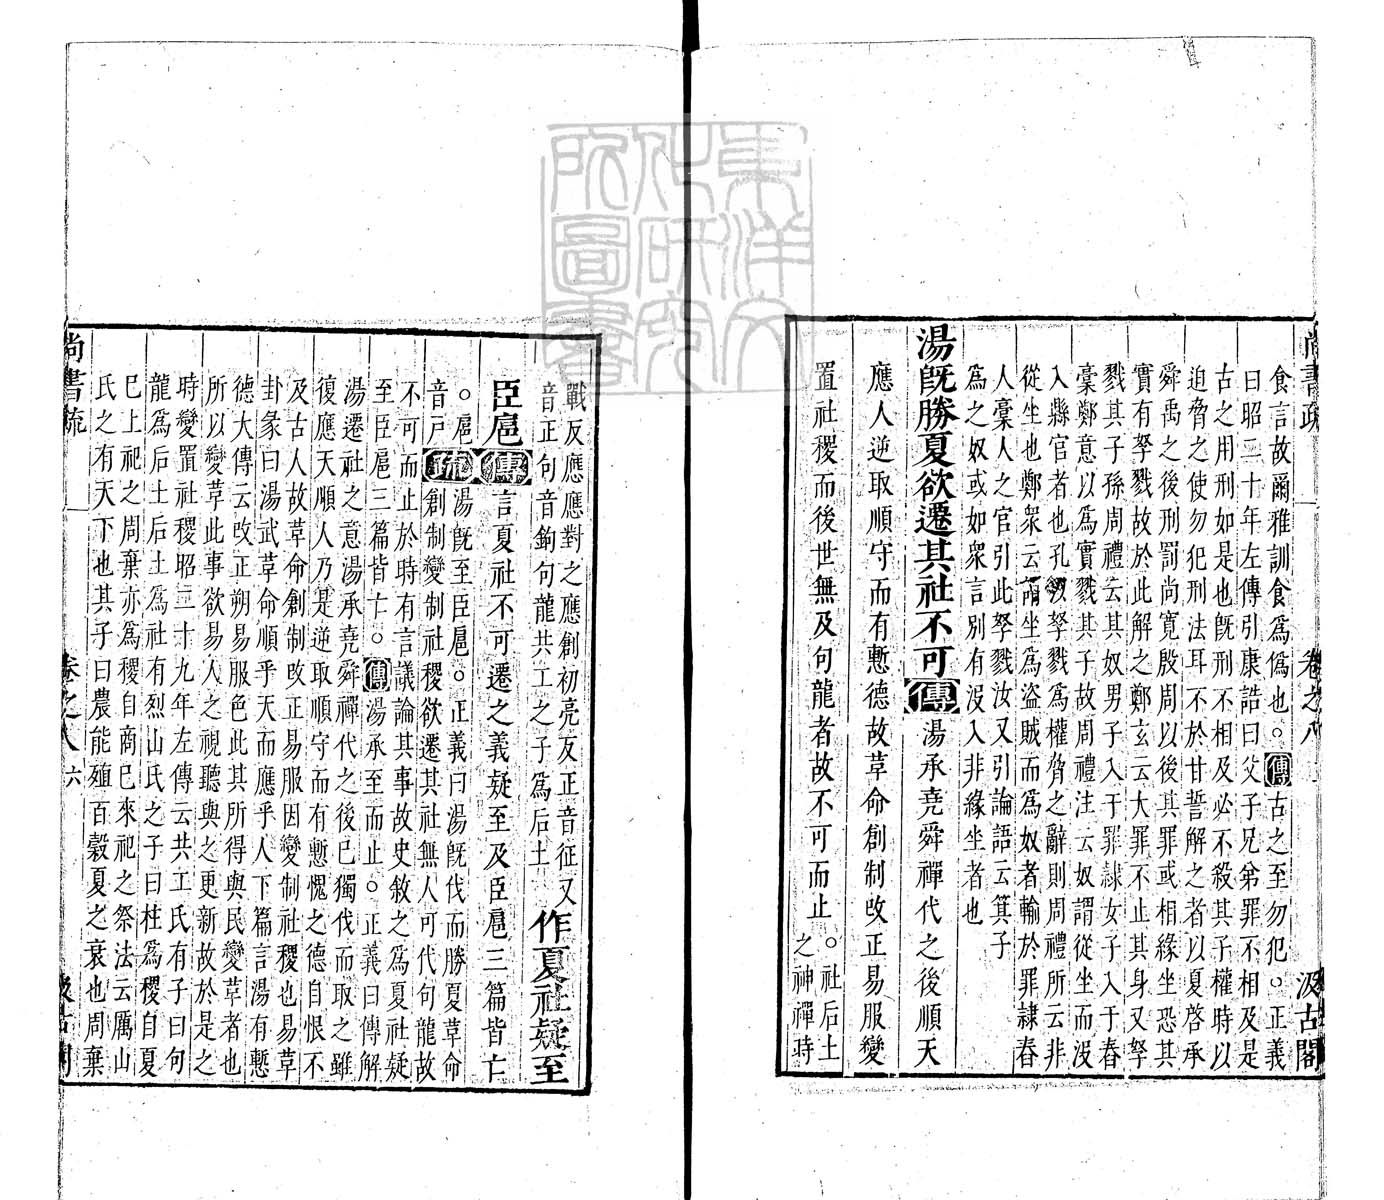 尚書疏 卷之八 汲古閣
食言故爾雅訓食為偽也。傳古之至勿犯。正義
曰昭二十年左傳引康誥曰父子兄弟罪不相及是
古之用刑如是也既刑不相及必不殺其子權時以
迫脅之使勿犯刑法耳不於甘誓解之者以夏啓承
舜禹之後刑罰尚寬殷周以後其罪或相緣坐恐其
實有孥戮故於此解之鄭玄云大罪不止其身又孥
戮其子孫周禮云其奴男子入于罪隸女子入于舂
稾鄭意以為實戮其子故周禮注云奴謂從坐而沒
入縣官者也孔以孥戮為權脅之辭則周禮所云非
從坐也鄭衆云謂坐為盜賊而為奴者輸於罪隸舂
人稾人之官引此孥戮汝又引論語云箕子
為之奴或如衆言別有沒入非緣坐者也
湯既勝夏欲遷其社不可傳湯承堯舜禪代之後順天
應人逆取順守而有慙德故革命創制改正易服變
置社稷而後世無及句龍者故不可而止。社后土
之神禪時
戰反應應對之應創初亮反正音征又
音正句音鉤句龍共工之子為后土
作夏社疑至
臣扈傳言夏社不可遷之義疑至及臣扈三篇皆亡
。扈
音戶
疏湯既至臣扈。正義曰湯既伐而勝夏革命
創制變制社稷欲遷其社無人可代句龍故
不可而止於時有言議論其事故史敘之為夏社疑
至臣扈三篇皆亡。傳湯承至而止。正義曰傳解
湯遷社之意湯承堯舜禪代之後已獨伐而取之雖
復應天順人乃是逆取順守而有慙愧之德自恨不
及古人故革命創制改正易服因變制社稷也易革
卦彖曰湯武革命順乎天而應乎人下篇言湯有慙
德大傳云改正朔易服色此其所得與民變革者也
所以變革此事欲易人之視聽與之更新故於是之
時變置社稷昭二十九年左傳云共工氏有子曰句
龍為后土后土為社有烈山氏之子曰柱為稷自夏
巳上祀之周棄亦為稷自商巳來祀之祭法云厲山
氏之有天下也其子曰農能殖百穀夏之衰也周棄
尚書疏 卷之八 六 汲古閣
東洋文化研究所圖書